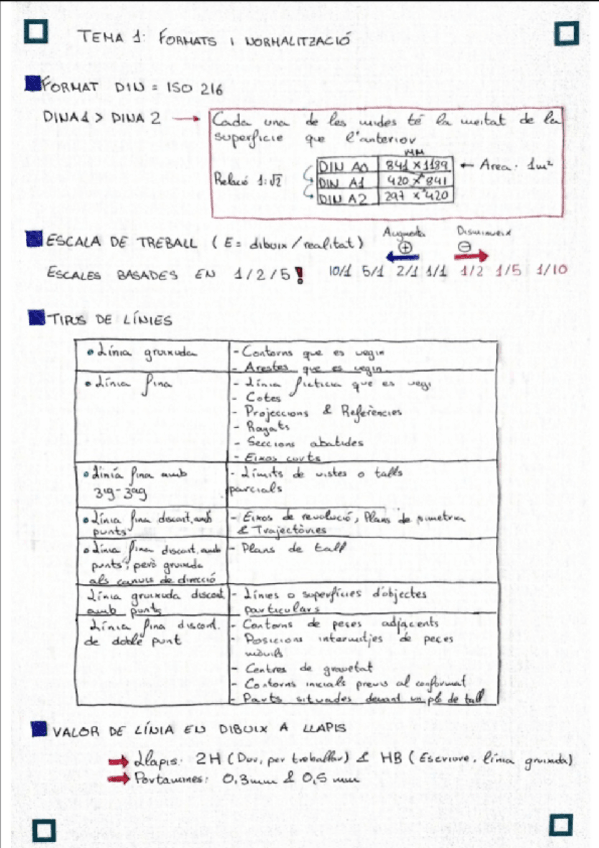 TEMA 1: FORMATS I NORMALITZACIÓ
FORMAT DIN = ISO 216
DINA1 > DINA2 → Cada una de les mides té la meitat de la
superfície que l'anterior
MM
Relació 1:√2
DIN A0 841 x 1189 ← Area. 1m²
DIN A1 420 x 841
DIN A2 297 x 420
ESCALA DE TREBALL (E = dibuix/realitat)
Augmenta Disminueix
⊕ ⊖
ESCALES BASADES EN 1/2/5! 10/1 5/1 2/1 1/1 1/2 1/5 1/10
TIPUS DE LÍNIES
• Línia gruixuda - Contorns que es vegin
- Arestes que es vegin
• Línia fina - Línia ficticia que es vegi
- Cotes
- Projeccions & Referències
- Ragats
- Seccions abatides
- Eixos curts
• Línia fina amb - Límits de vistes o talls
zig-zag parcials
• Línia fina discort. amb - Eixos de revolució, Plans de simetria
punts & Trajectòries
• Línia fina discort. amb - Plans de tall
punts, però gruixuda
als canvis de direcció
Línia gruixuda discort. - Línies o superfícies d'objectes
amb punts particulars
Línia fina discort. - Contorns de peces adjacents
de doble punt - Posicions intermitjes de peces
mòvils
- Centres de gravetat
- Contorns inicials previs al conformat
- Parts situades devant un plà de tall
VALOR DE LÍNIA EN DIBUIX A LLAPIS
→ Llapis: 2H (Dur, per treballar) & HB (Escriure, línia gruixuda)
→ Portamines: 0,3mm & 0,5 mm